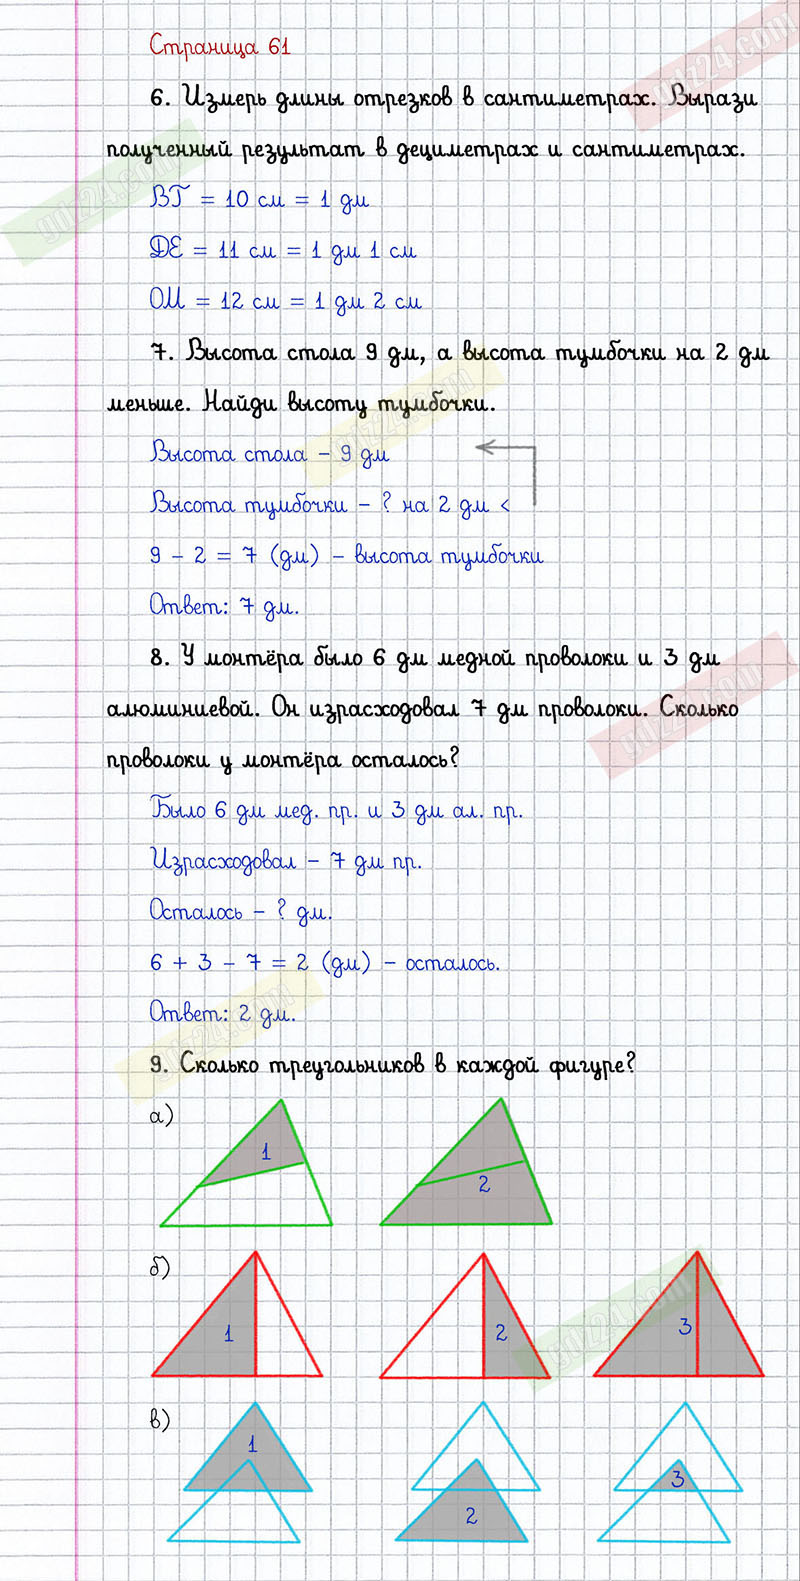 Страница 61
6. Измерь длины отрезков в сантиметрах. Вырази
полученный результат в дециметрах и сантиметрах.
ВТ = 10 см = 1 дм
DE = 11 см = 1 дм 1 см
ОМ = 12 см = 1 дм 2 см
7. Высота стола 9 дм, а высота тумбочки на 2 дм
меньше. Найди высоту тумбочки.
Высота стола – 9 дм
Высота тумбочки – ? на 2 дм <
9 – 2 = 7 (дм) – высота тумбочки
Ответ: 7 дм.
8. У монтёра было 6 дм медной проволоки и 3 дм
алюминиевой. Он израсходовал 7 дм проволоки. Сколько
проволоки у монтёра осталось?
Было 6 дм мед. пр. и 3 дм ал. пр.
Израсходовал – 7 дм пр.
Осталось – ? дм.
6 + 3 – 7 = 2 (дм) – осталось.
Ответ: 2 дм.
9. Сколько треугольников в каждой фигуре?
а)
1
2
б)
1
2
3
в)
1
2
3
gdz24.com
gdz24.com
gdz24.com
gdz24.com
gdz24.com
gdz24.com